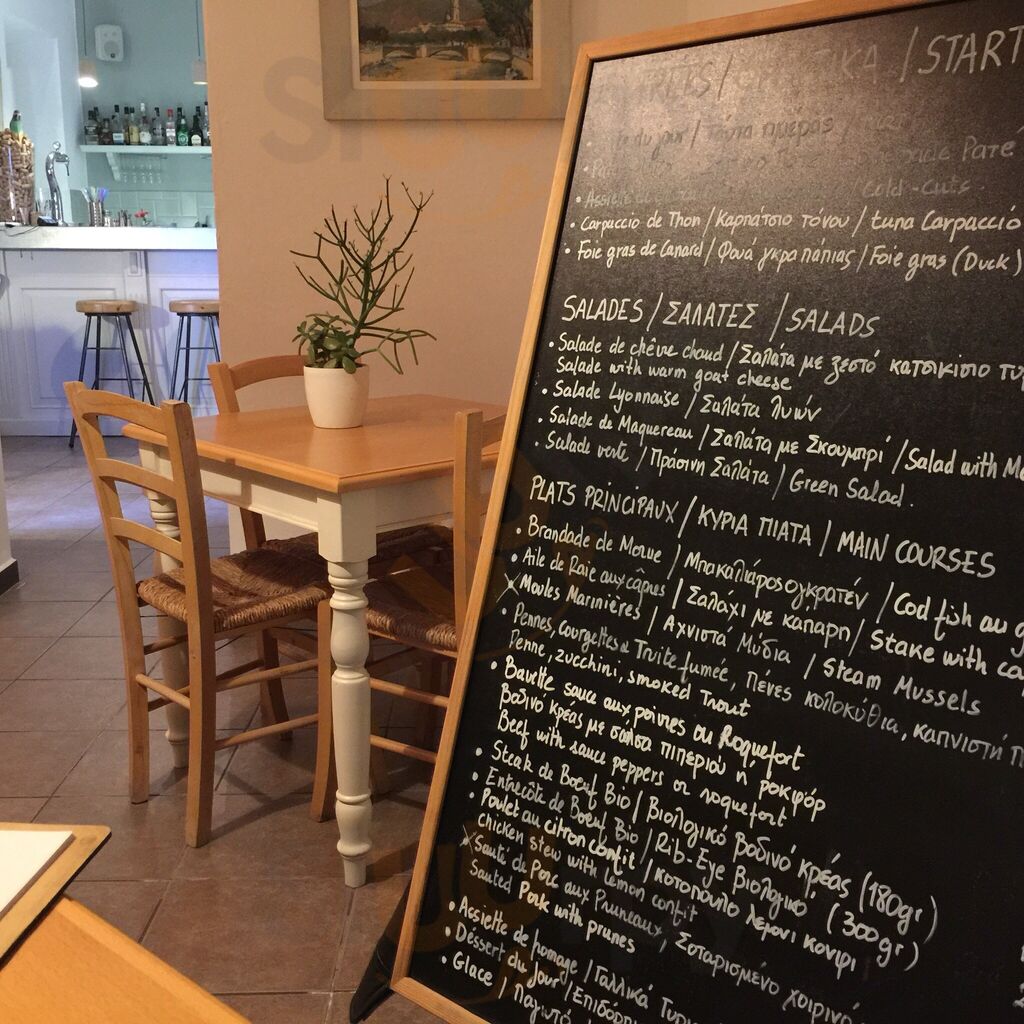 / START
du jour / ημέρας
Paté
Assiette cold-cuts.
• Carpaccio de Thon / Καρπάτσιο τόνου / tuna Carpaccio
• Foie gras de Canard / Φουά γκρα πάπιας / Foie gras (Duck)
SALADES / ΣΑΛΑΤΕΣ / SALADS
• Salade de chêvre chaud / Σαλάτα με ζεστό κατσικίσιο τυ
Salade with warm goat cheese
• Salade Lyonnaise / Σαλάτα Λυών
• Salade de Maquereau / Σαλάτα με Σκουμπρί / Salad with Ma
• Salade verte / Πράσινη Σαλάτα / Green Salad.
PLATS PRINCIPAUX / ΚΥΡΙΑ ΠΙΑΤΑ / MAIN COURSES
• Brandade de Morue / Μπακαλιάρος ογκρατέν / Cod fish au g
• Aile de Raie aux câpres / Σαλάχι με κάπαρη / Stake with ca
x Moules Marinières / Αχνιστά Μύδια / Steam Mussels
• Pennes, courgettes & Truite fumée, Πένες κολοκύθια, καπνιστή π
Penne, zucchini, smoked Trout
• Bavette sauce aux poivres ou Roquefort
Βοδινό κρέας με σάλτσα πιπεριού ή ροκφόρ
Beef with sauce peppers or roquefort
• Steak de Boeuf Bio / Βιολογικό βοδινό κρέας (180gr)
• Entrecôte de Boeuf Bio / Rib-Eye βιολογικό (300gr)
• Poulet au citron confit / κοτόπουλο λεμόνι κονφί
chicken stew with lemon confit
x Sauté de Porc aux Pruneaux, Σοταρισμένο χοιρινό
Sauted Pork with prunes
• Assiette de fromage / Γαλλικά Τυρ
• Déssert du jour / Επιδόρπ
• Glace / Παγωτό